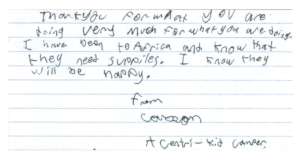 Thankyou For what you are
doing very much For what you are doing.
I have been to Africa and know that
they need suppiles. I know they
will be happy.
from